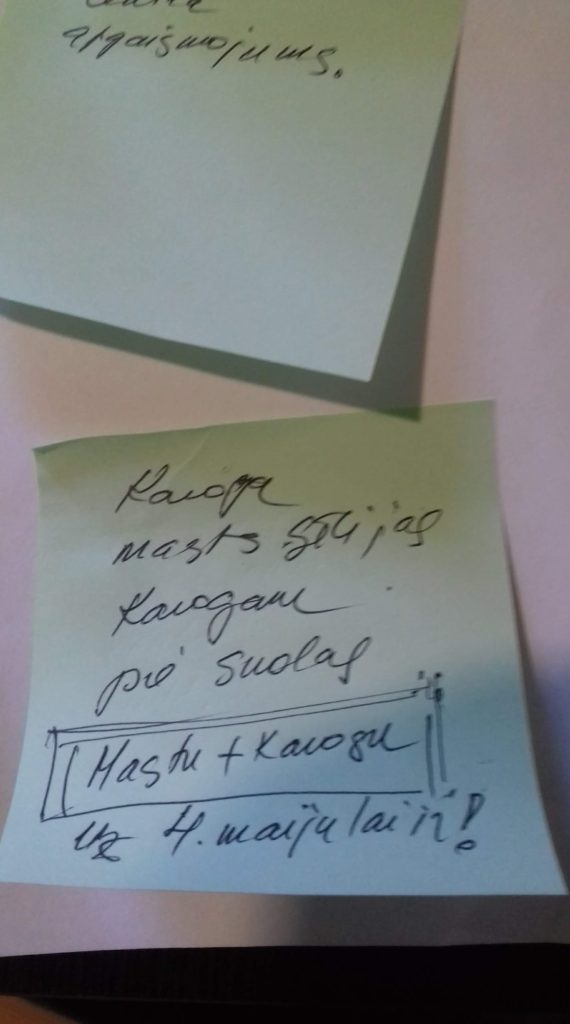 apgaismojums.
Karoga
masts Sēlijas
Karogam
pie skolas
Mastu + Karogu
uz 4. maiju lai ir!